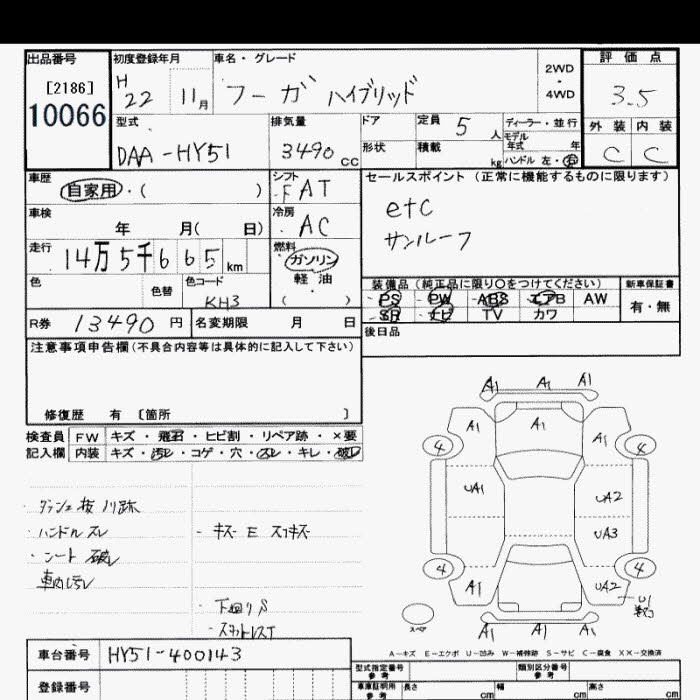 出品番号
[2186]
10066
初度登録年月
H 22 11月
車名・グレード
フーガ ハイブリッド
2WD
・
4WD
評価点
3.5
外装 内装
C C
型式
DAA-HY51
排気量
3490 CC
ドア
形状
定員 5 人
積載 kg
ディーラー・並行
モデル
年式 年
ハンドル 左・右
車歴
自家用・( )
シフト
FAT
車検
年 月( 日)
冷房
AC
走行
14万5千665 km
燃料
ガソリン
軽油
( )
色
色替
色コード
KH3
R券 13490 円
名変期限 月 日
セールスポイント (正常に機能するものに限ります)
etc
サンルーフ
装備品 (純正品に限り○をつけてください)
PS PW ABS エアB AW
SR ナビ TV カワ
新車保証書
有・無
後日品
注意事項申告欄(不具合内容等は具体的に記入して下さい)
修復歴 有 〔箇所 〕
検査員
記入欄
FW キズ・飛石・ヒビ割・リペア跡・×要
内装 キズ・汚レ・コゲ・穴・スレ・キレ・破レ
ハンドルスレ
シート破レ
車内汚レ
キズ E スリキズ
下廻りS
A1 A1 A1
A1 A1 A1
4 4
UA1 UA2
UA3
4 4
A1 UA2
U1
スペア
A1 A1 A1
A-キズ E-エクボ U-凹み W-補修跡 S-サビ C-腐食 XX-交換済
車台番号 HY51-400143
登録番号
型式指定番号
参考
類別区分番号
参考
車庫証明用
参考
長さ cm
幅 cm
高さ cm